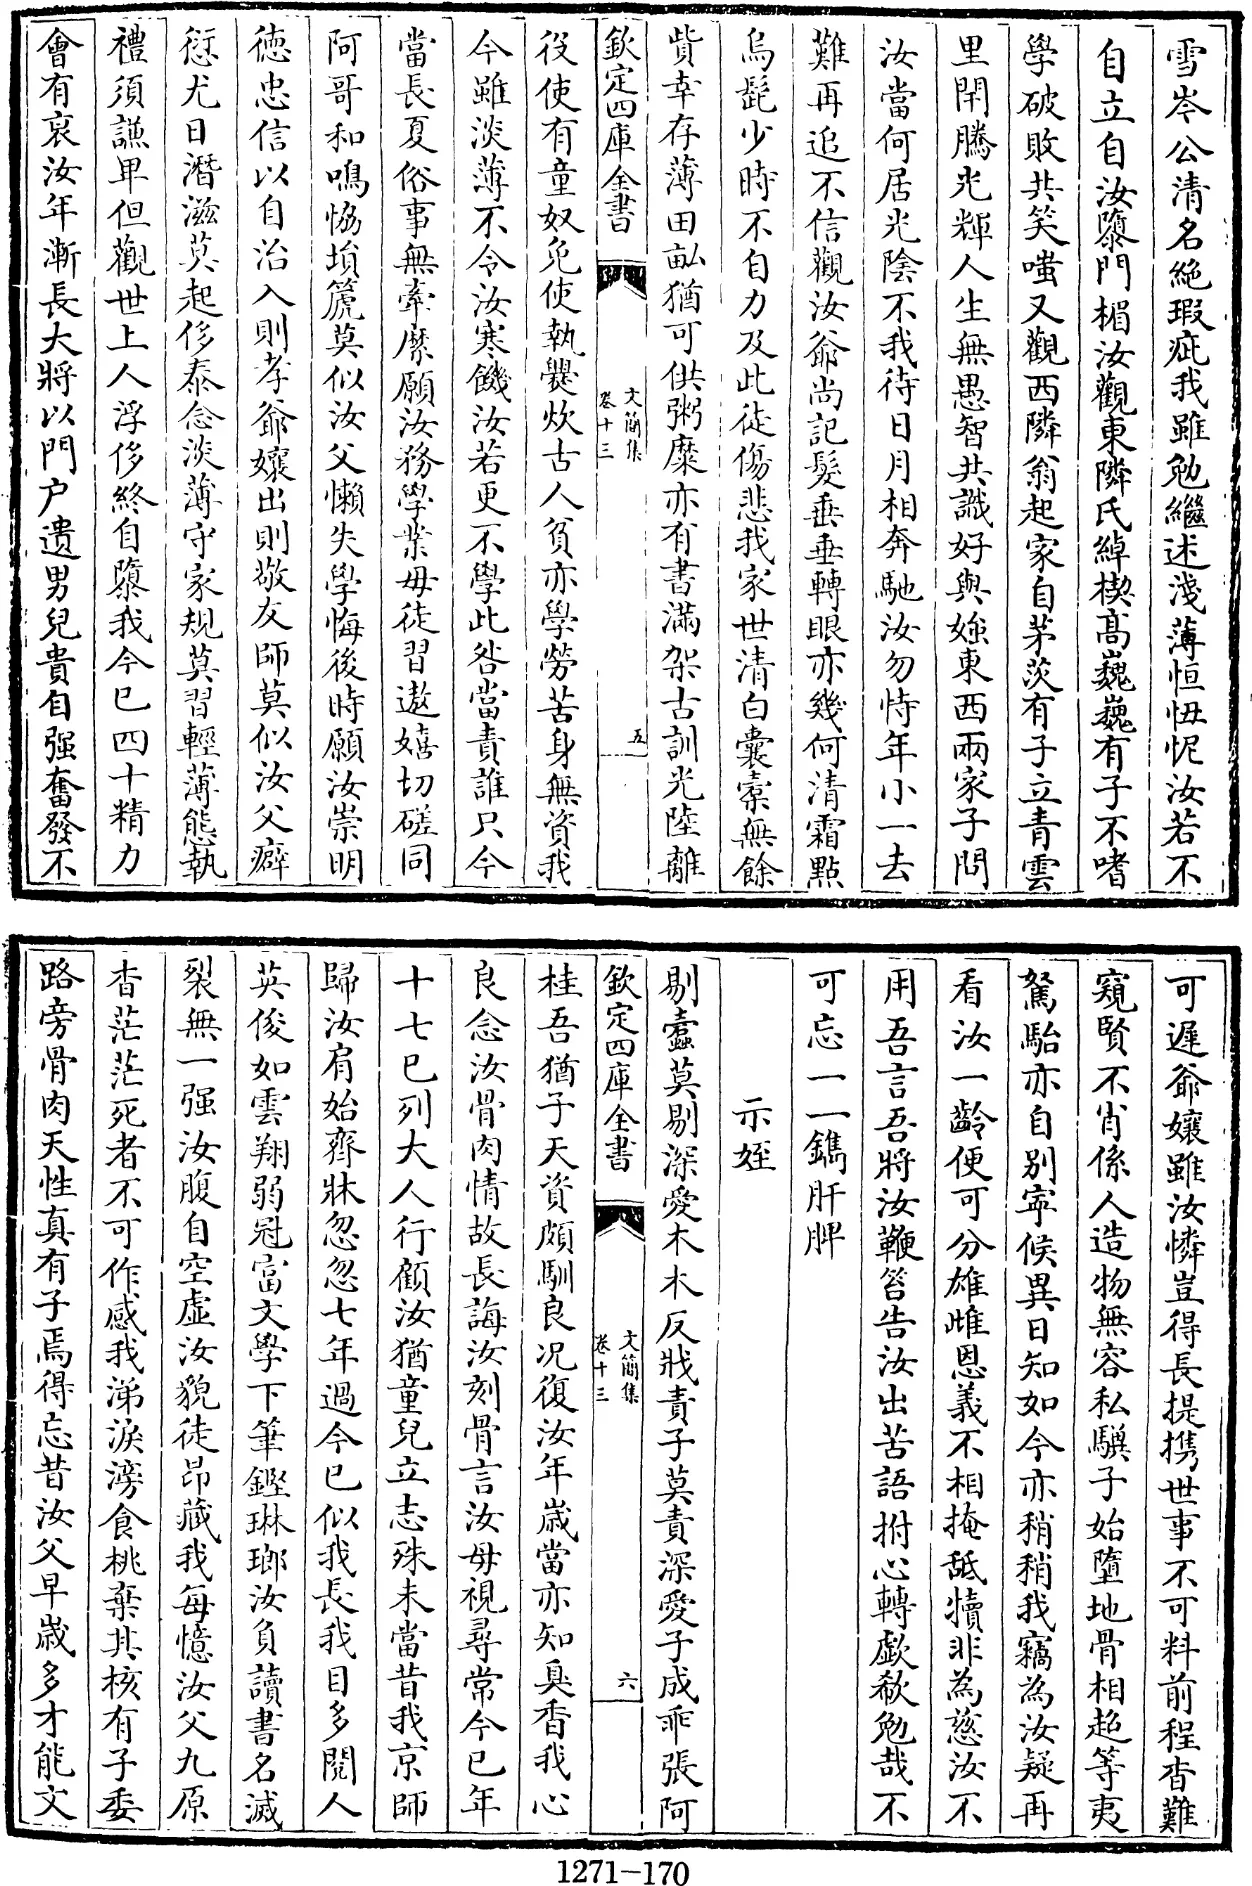 雪岑公清名絶瑕疵我雖勉繼述淺薄恒忸怩汝若不
自立自汝隳門楣汝觀東隣氏綽楔髙巍巍有子不嗜
學破敗共笑嗤又觀西隣翁起家自茅茨有子立青雲
里閈騰光輝人生無愚智共識好與媸東西兩家子問
汝當何居光陰不我待日月相奔馳汝勿恃年小一去
難再追不信觀汝爺尚記髮垂垂轉眼亦幾何清霜點
烏髭少時不自力及此徒傷悲我家世清白囊槖無餘
貲幸存薄田畝猶可供粥糜亦有書滿架古訓光陸離
欽定四庫全書
文簡集
卷十三
五
役使有童奴免使執爨炊古人貧亦學勞苦身無資我
今雖淡薄不令汝寒饑汝若更不學此咎當責誰只今
當長夏俗事無牽縻願汝務學業毋徒習遨嬉切磋同
阿哥和鳴恊塤箎莫似汝父懶失學悔後時願汝崇明
徳忠信以自治入則孝爺孃出則敬友師莫似汝父癖
愆尤日潛滋莫起侈泰念淡薄守家規莫習輕薄態執
禮須謙卑但觀世上人浮侈終自隳我今已四十精力
會有衰汝年漸長大將以門户遺男兒貴自强奮發不
可遲爺孃雖汝憐豈得長提携世事不可料前程杳難
窺賢不肖係人造物無容私驥子始墮地骨相超等夷
駑駘亦自别寧候異日知如今亦稍稍我竊為汝疑再
看汝一齡便可分雄雌恩義不相掩舐犢非為慈汝不
用吾言吾將汝鞭笞告汝出苦語拊心轉歔欷勉哉不
可忘一一鐫肝脾
示姪
剔蠧莫剔深愛木木反戕責子莫責深愛子成乖張阿
欽定四庫全書
文簡集
卷十三
六
桂吾猶子天資頗馴良况復汝年嵗當亦知臭香我心
良念汝骨肉情故長誨汝刻骨言汝毋視尋常今已年
十七已列大人行顧汝猶童兒立志殊未當昔我京師
歸汝肩始齊牀忽忽七年過今已似我長我目多閲人
英俊如雲翔弱冠富文學下筆鏗琳瑯汝負讀書名滅
裂無一强汝腹自空虚汝貌徒昂藏我每憶汝父九原
杳茫茫死者不可作感我涕淚滂食桃棄其核有子委
路旁骨肉天性真有子焉得忘昔汝父早嵗多才能文
1271-170